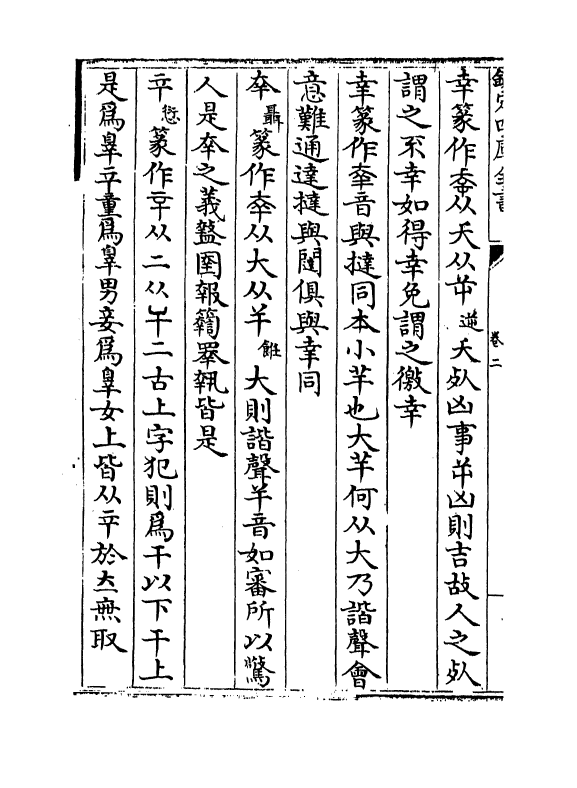 欽定四庫全書
卷二
幸篆作㚔从夭从屰逆夭死凶事屰凶則吉故人之死
謂之不幸如得幸免謂之徼幸
羍篆作羍音與撻同本小羊也大羊何从大乃諧聲會
意難通達撻與闥俱與羍同
㚔聶篆作㚔从大从𢆉飪大則諧聲𢆉音如審所以驚
人是㚔之義盩圉報籋睪執皆是
䇂愆篆作䇂从二从𢆉二古上字犯則為干以下干上
是為辠䇂童為辠男妾為辠女上皆从䇂於𡗗無取